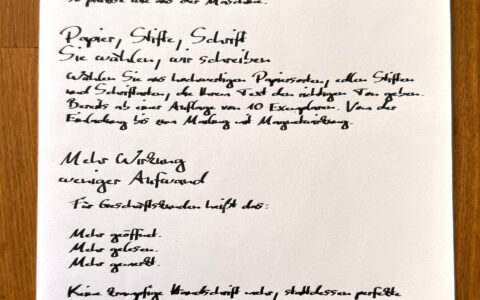 so präzise wie aus der Maschine.
Papier, Stifte, Schrift
Sie wählen, wir schreiben
Wählen Sie aus hochwertigen Papiersorten, edlen Stiften
und Schriftarten, die Ihrem Text den richtigen Ton geben.
Bereits ab einer Auflage von 10 Exemplaren. Von der
Einladung bis zum Mailing mit Magnetwirkung.
Mehr Wirkung
weniger Aufwand
Für Geschäftskunden heißt das:
Mehr geöffnet.
Mehr gelesen.
Mehr gemerkt.
Keine krampfige Handschrift mehr, stattdessen perfekte